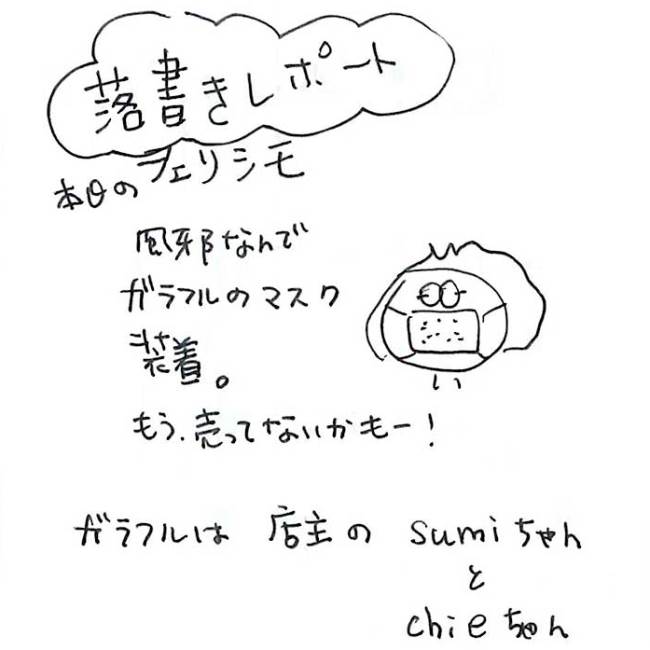 落書きレポート
本日のフェリシモ
風邪なんで
ガラフルのマスク
装着。
もう、売ってないかもー!
ガラフルは 店主の sumiちゃん
と
chieちゃん